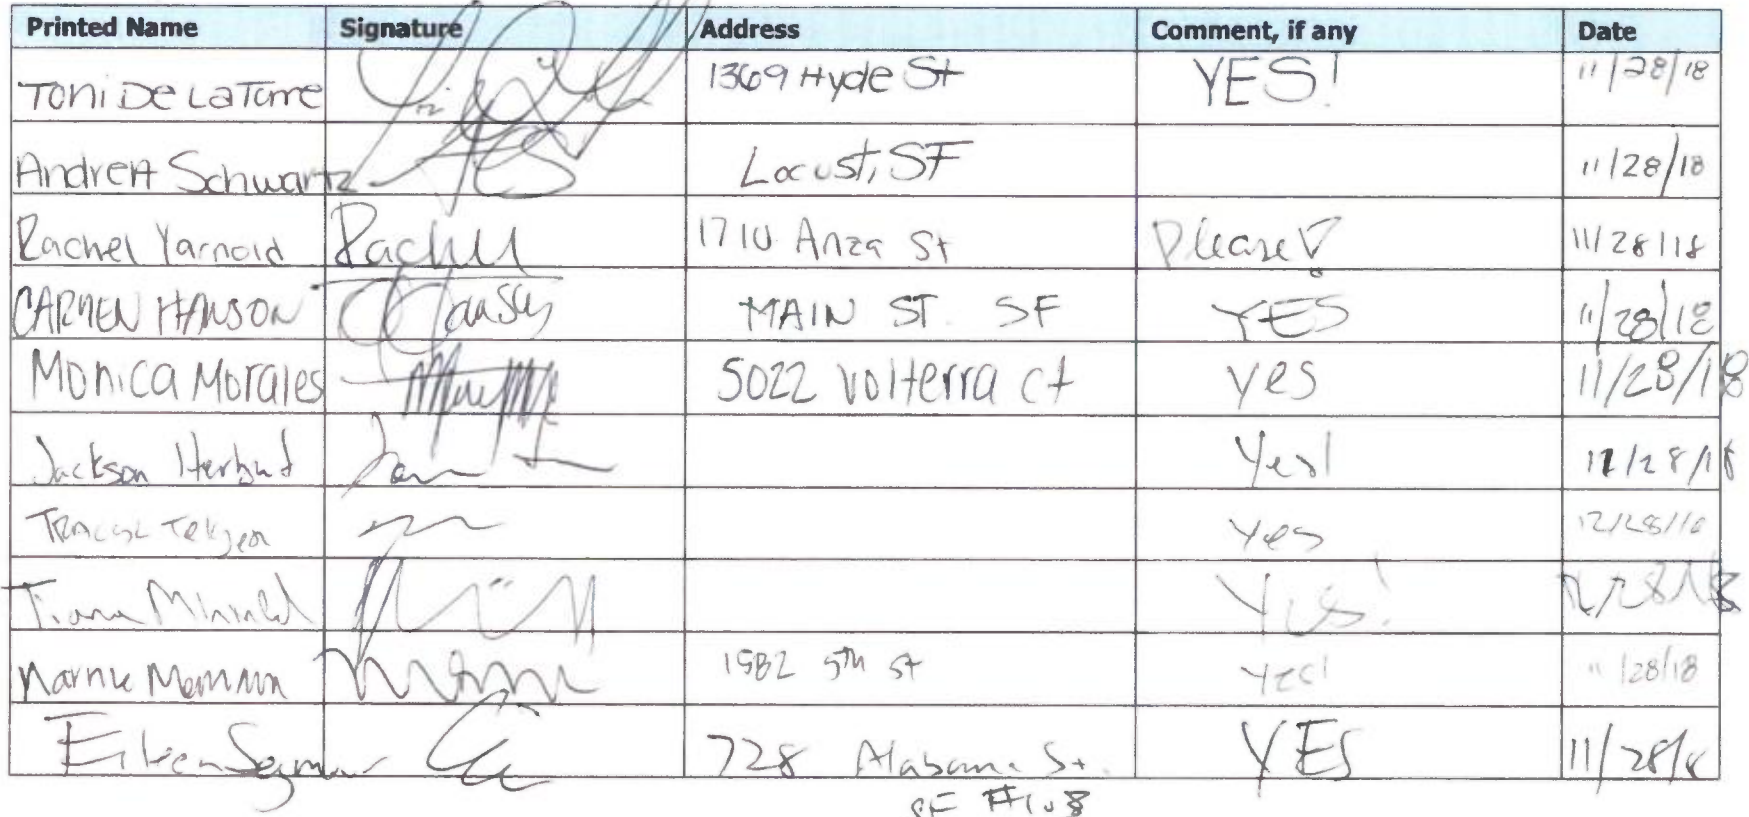 Printed Name Signature Address Comment, if any Date
Toni De La Torre 1369 Hyde St YES! 11/28/18
Andrea Schwartz Locust, SF 11/28/18
Rachel Yarnold Rachel 1710 Anza St Please! 11/28/18
CARMEN HANSON MAIN ST. SF YES 11/28/18
Monica Morales 5022 Volterra ct yes 11/28/18
Jackson Yes! 11/28/18
yes 12/28/18
Tiana Yes!
1582 5th st yes! 11/28/18
Eileen Seymour 728 Alabama St. YES 11/28/8
SF #108